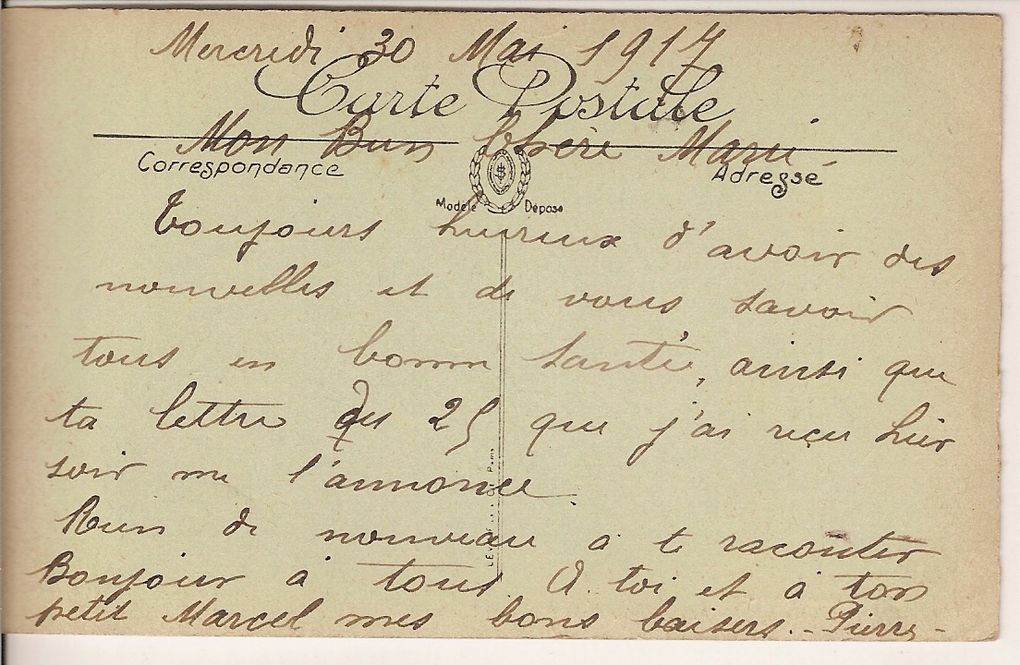 Mercredi 30 Mai 1917
Carte Postale
Mon Bien Chère Marie -
Correspondance
Adresse
Modèle Déposé
Toujours heureux d'avoir des
nouvelles et de vous savoir
tous en bonne santé, ainsi que
ta lettre du 25 que j'ai reçu hier
soir me l'annonce.
Rien de nouveau à te raconter
Bonjour à tous A toi et à ton
petit Marcel mes bons baisers. - Pierre -